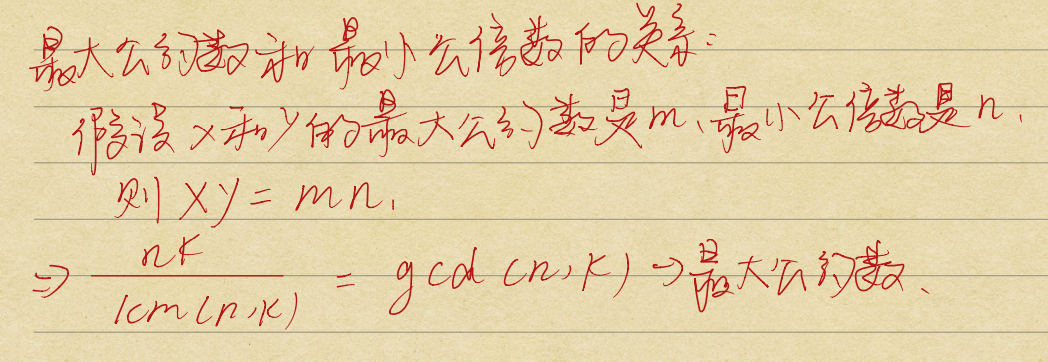 最大公约数和最小公倍数的关系:
假设x和y的最大公约数是m、最小公倍数是n.
则 xy = mn.
⇒ nk / lcm(n,k) = gcd(n,k) → 最大公约数.